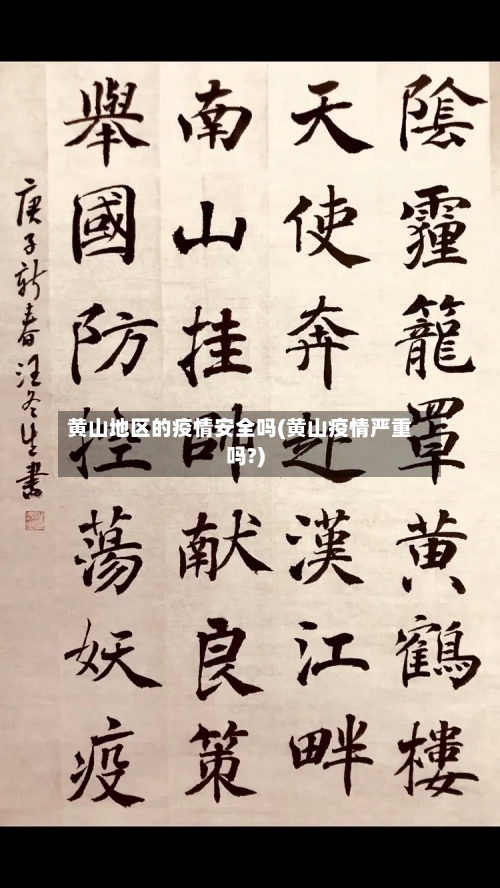 陰霾籠罩黄鶴樓
天使奔赴漢江畔
南山挂帥献良策
舉國防控蕩妖疫
庚子新春汪冬生書
黄山地区的疫情安全吗(黄山疫情严重
吗?)